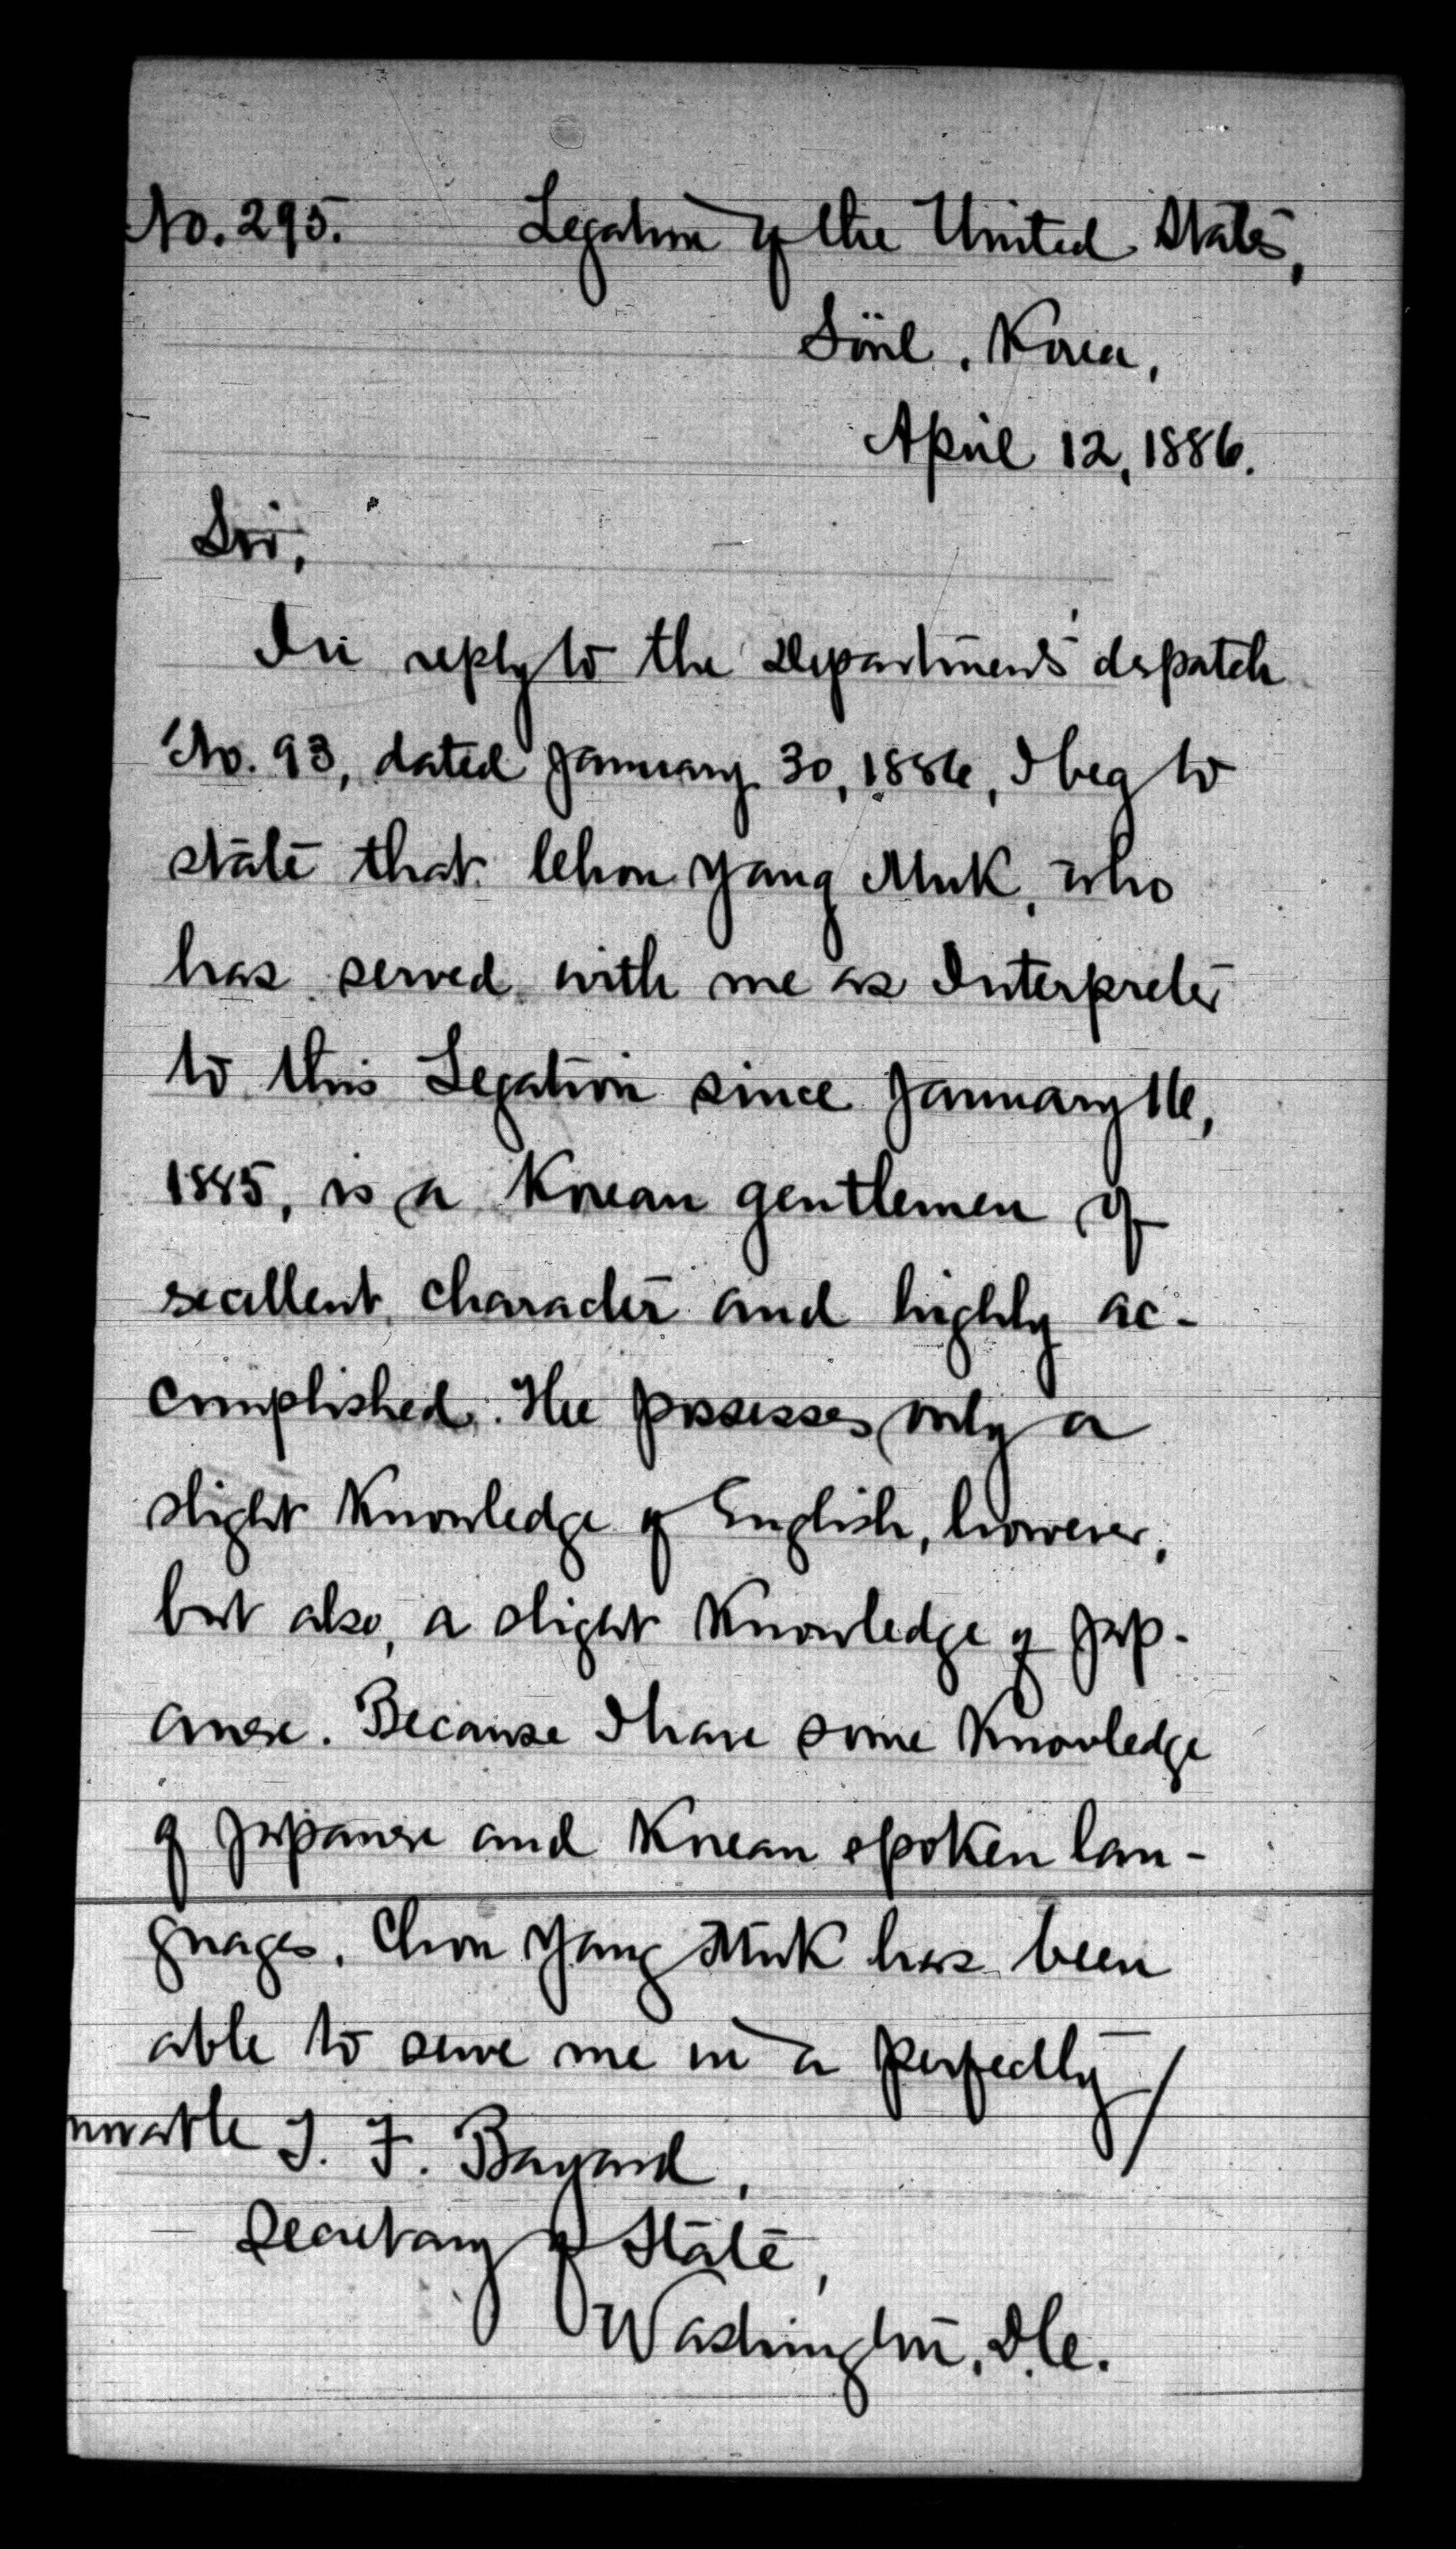 No. 295. Legation of the United States,
Söul, Korea,
April 12, 1886.
Sir,
In reply to the Department's dispatch
No. 93, dated January 30, 1886, I beg to
state that Chon Yang Muk, who
has served with me as Interpreter
to this Legation since January 16,
1885, is a Korean gentlemen of
excellent character and highly ac-
complished. He possesses only a
slight knowledge of English, however,
but also, a slight knowledge of Jap-
anese. Because I have some knowledge
of Japanese and Korean spoken lan-
guages, Chon Yang Muk has been
able to serve me in a perfectly
norable T. F. Bayard,
Secretary of State,
Washington, D.C.